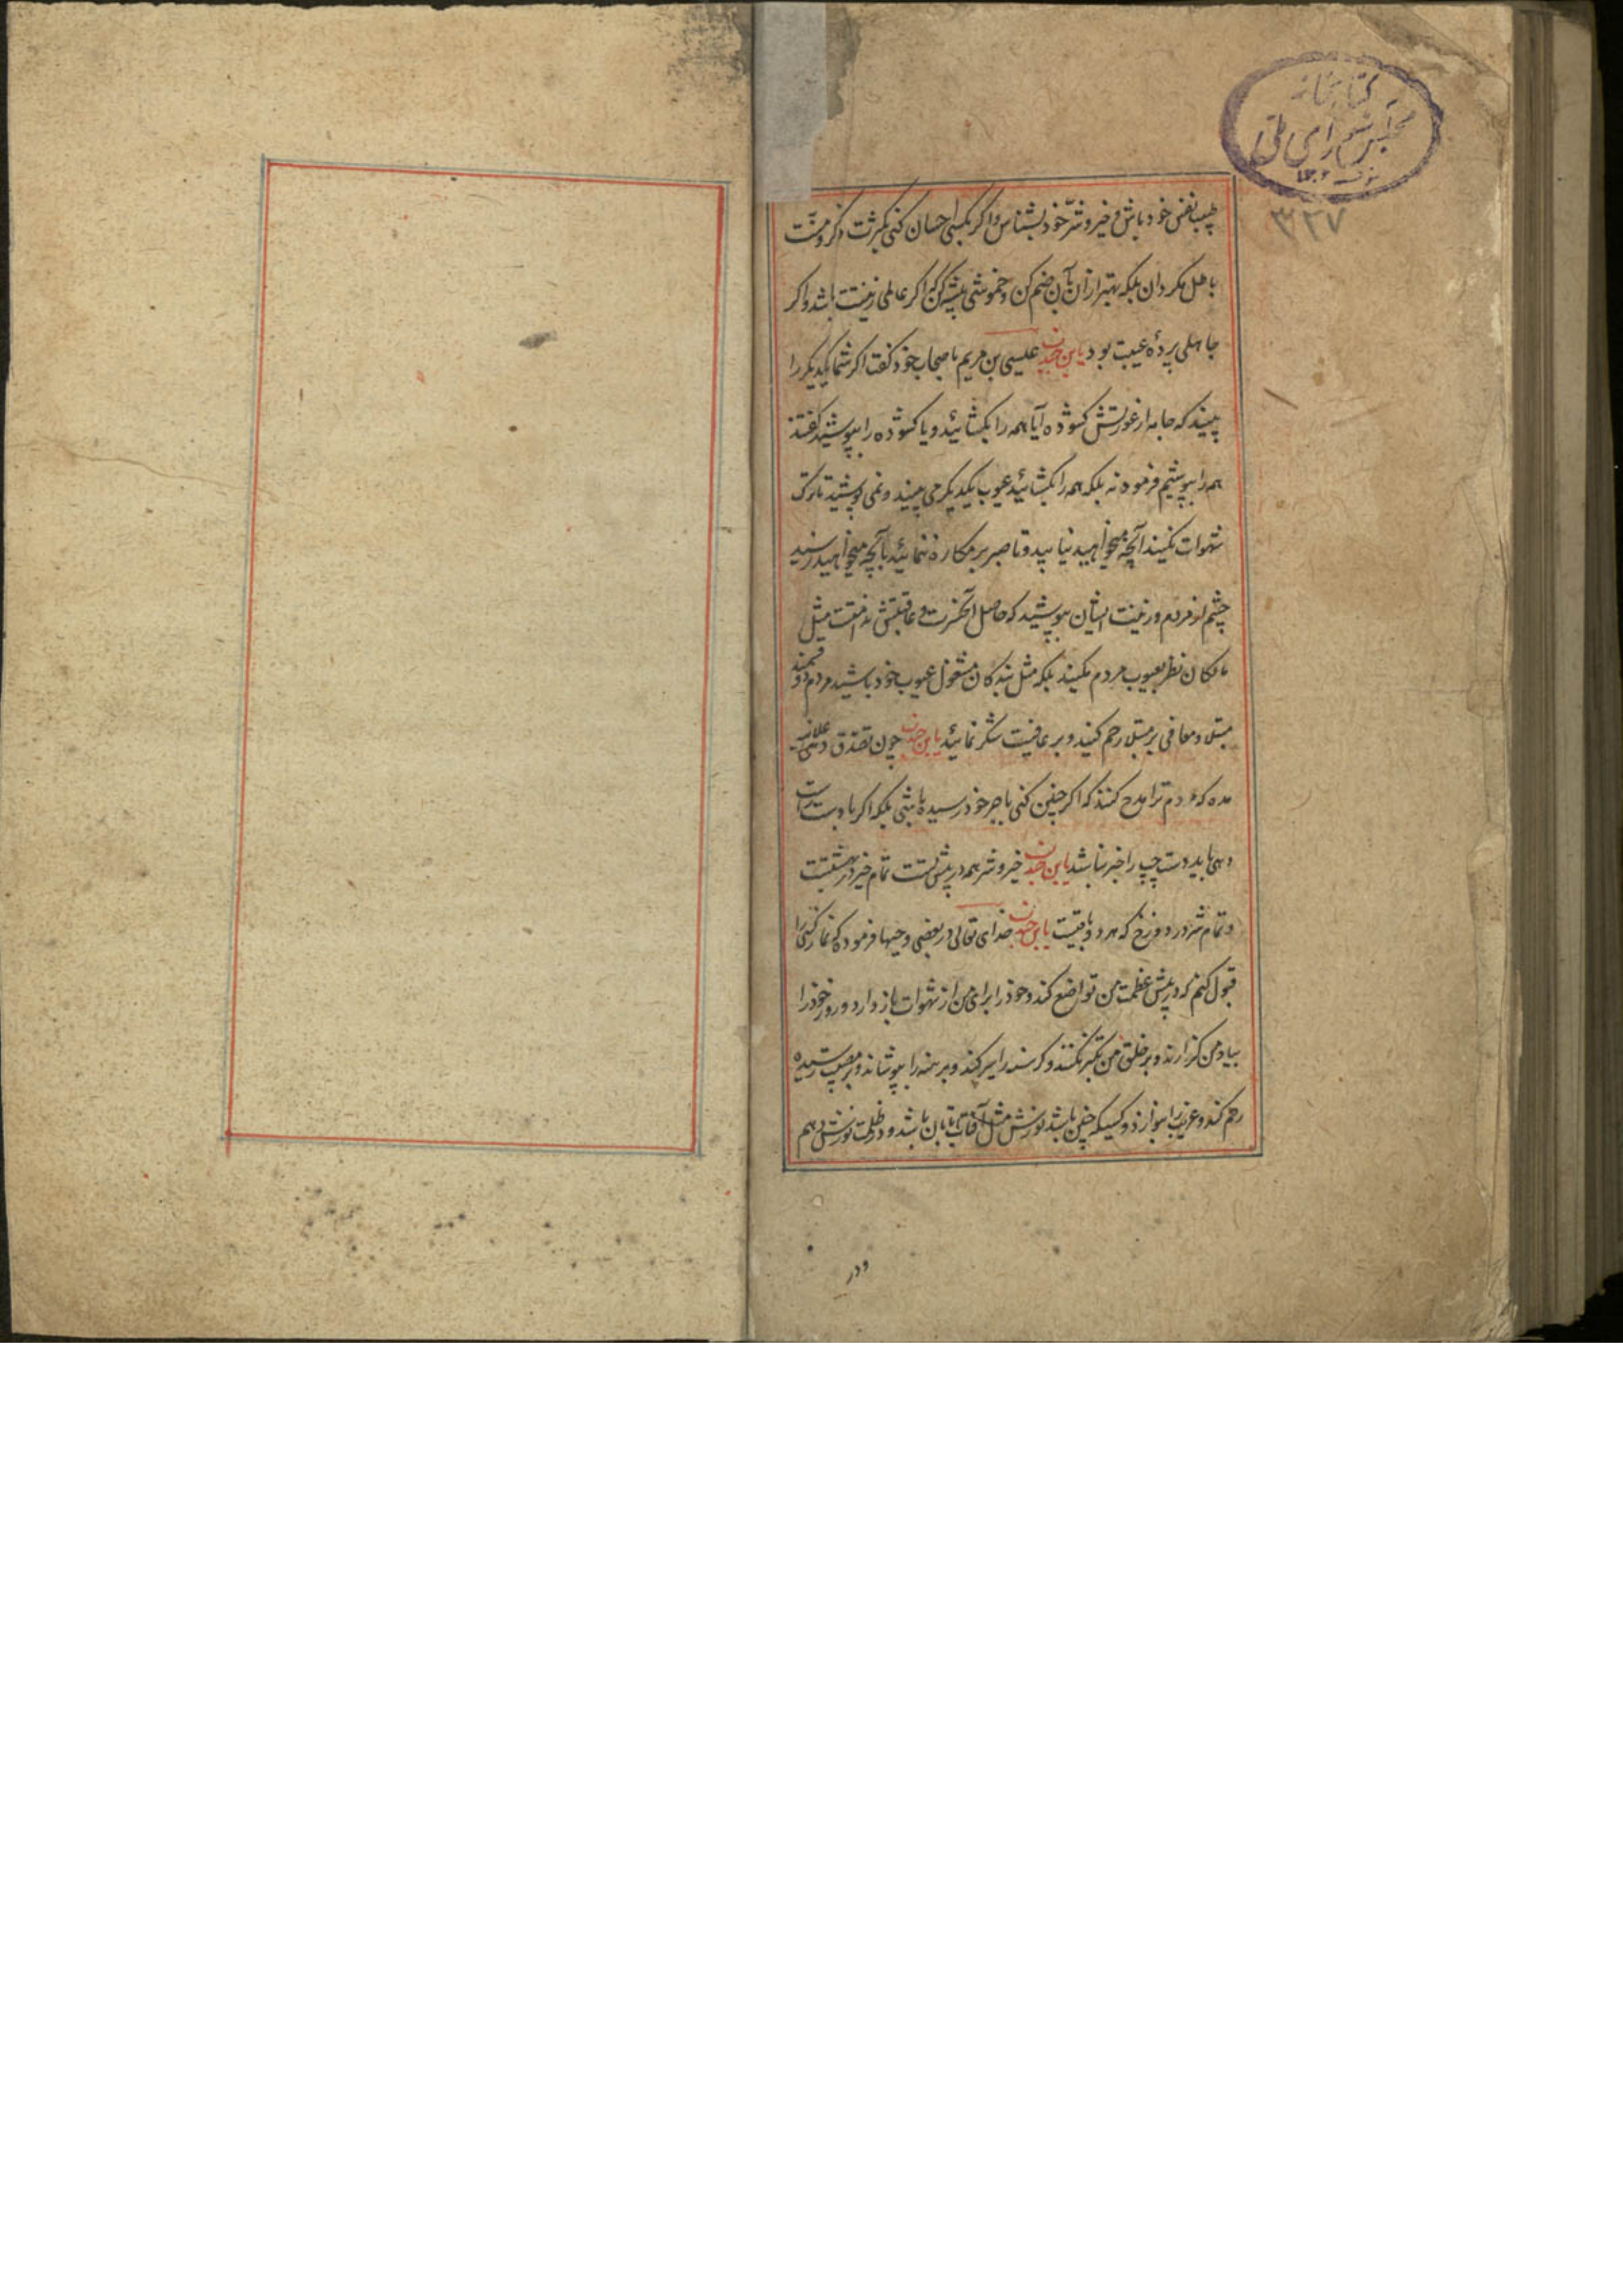 کتابخانه
مجلس شورای ملی
۳۲۷
طبیب نفس خود باش و خیر و شرّ خود بشناس و اگر بکسی احسان کنی بکثرت ذکر و منّت
باطل مکردان بلکه بهتر از ان بآن ضم کن و خموشی پیشه کن که اگر عالمی زینتت باشد و اگر
جاهلی پردهٔ عیبت بود یابن جندب عیسی بن مریم باصحاب خود کفت اگر شما یکدیکر را
بینید که جامه از عورتش کشوده آیا همه را بکشائید و یا کشوده را بپوشید کفتند
همه را بپوشیم فرمود نه بلکه همه را بکشائید عیوب یکدیکر می بینید و نمی پوشید تا ترک
شهوات نکنید آنچه میخواهید نیابید و تا صبر بر مکاره ننمائید بآنچه میخواهید نرسید
چشم از مردم و زینت ایشان بپوشید که حاصل آن حسرت و عاقبتش ندامتست مثل
مالکان نظر بعیوب مردم نکنید بلکه مثل بندکان مشغول عیوب خود باشید مردم دو قسمند
مبتلا و معافی بر مبتلا رحم کنید و بر عافیت شکر نمائید یابن جندب چون تصدق دهی علانیه
مده که مردم ترا مدح کنند که اگر چنین کنی باجر خود رسیده باشی بلکه اگر با دست راست
دهی باید دست چپ را خبر نباشد یابن جندب خیر و شر همه در پیش تست تمام خیر در بهشتست
و تمام شر در دوزخ که هر دو باقیست یابن جندب خدای تعالی در بعضی وحیها فرمود که نماز کسی را
قبول کنم که در پیش عظمت من تواضع کند و خود را برای من از شهوات باز دارد و روز خود را
بیاد من کذراند و بر خلق من تکبر نکند و کرسنه را سیر کند و برهنه را بپوشاند و بر مصیبت رسیده
رحم کند و غریب را بنوازد و کسیکه چنین باشد نورش مثل آفتاب تابان باشد و در ظلمت نورش دهم
و در